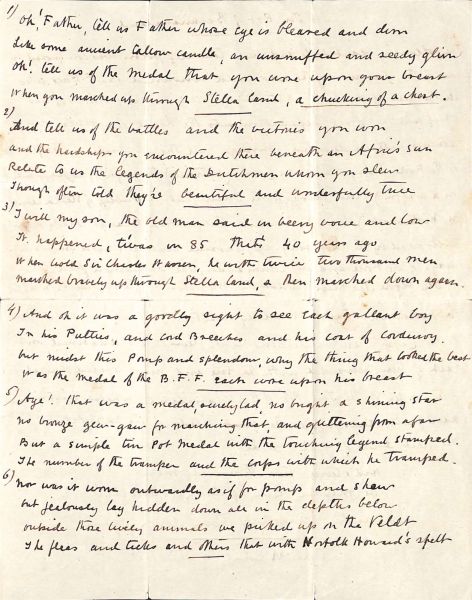 1) Oh! Father, tell us Father whose eye is bleared and dim
Like some ancient tallow candle, an unsnuffed and seedy glim
Oh! tell us of the medal that, you wore upon your breast
When you marched up through Stella Land, a chucking of a chest.
2) And tell us of the battles and the victories you won
and the hardships you encountered there beneath an Afric's sun
Relate to us the legends of the Dutchmen whom you slew
Though often told they're beautiful and wonderfully true
3) I will my son, the old man said in beery voice and low
It happened, twas in 85 that's 40 years ago
When bold Sir Charles Warren, he with twice two thousand men
marched bravely up through Stella Land, & then marched down again.
4) And oh it was a goodly sight to see each gallant boy
In his Putties, and cord Breeches and his coat of corduroy.
but midst this Pomp and splendour, why the thing that looked the best
was the medal of the B.F.F. each wore upon his breast
5) Aye! that was a medal, surely lad, no bright a shining star
no bronze gew-gaw for marching that, and glittering from afar
But a simple tin Pot medal with the touching legend stamped.
The number of the tramper and the corps with which he tramped.
6) Nor was it worn outwardly as if for pomp and shew
but jealously lay hidden down all in the depths below
outside those lively animals we picked up on the Veldt
The fleas and ticks and others that with Norfolk Howard's spelt